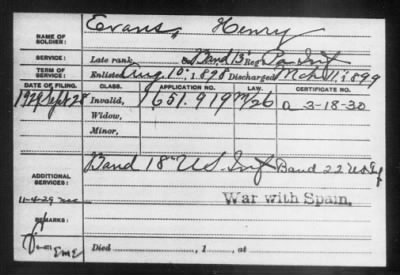 NAME OF SOLDIER: Evans, Henry
SERVICE: Late rank, Band 13" Reg't Pa Inf
TERM OF SERVICE: Enlisted Aug 10, 1898 Discharged Mch 11, 1899
DATE OF FILING. CLASS. APPLICATION NO. CERTIFICATE NO.
1929 Sept 28 Invalid, 1651.919 5/26 D 3-18-30
Widow,
Minor,
ADDITIONAL SERVICES: Band 18th U.S. Inf Band 22 U.S. Inf
11-4-29
War with Spain.
REMARKS:
Died , 1 , at